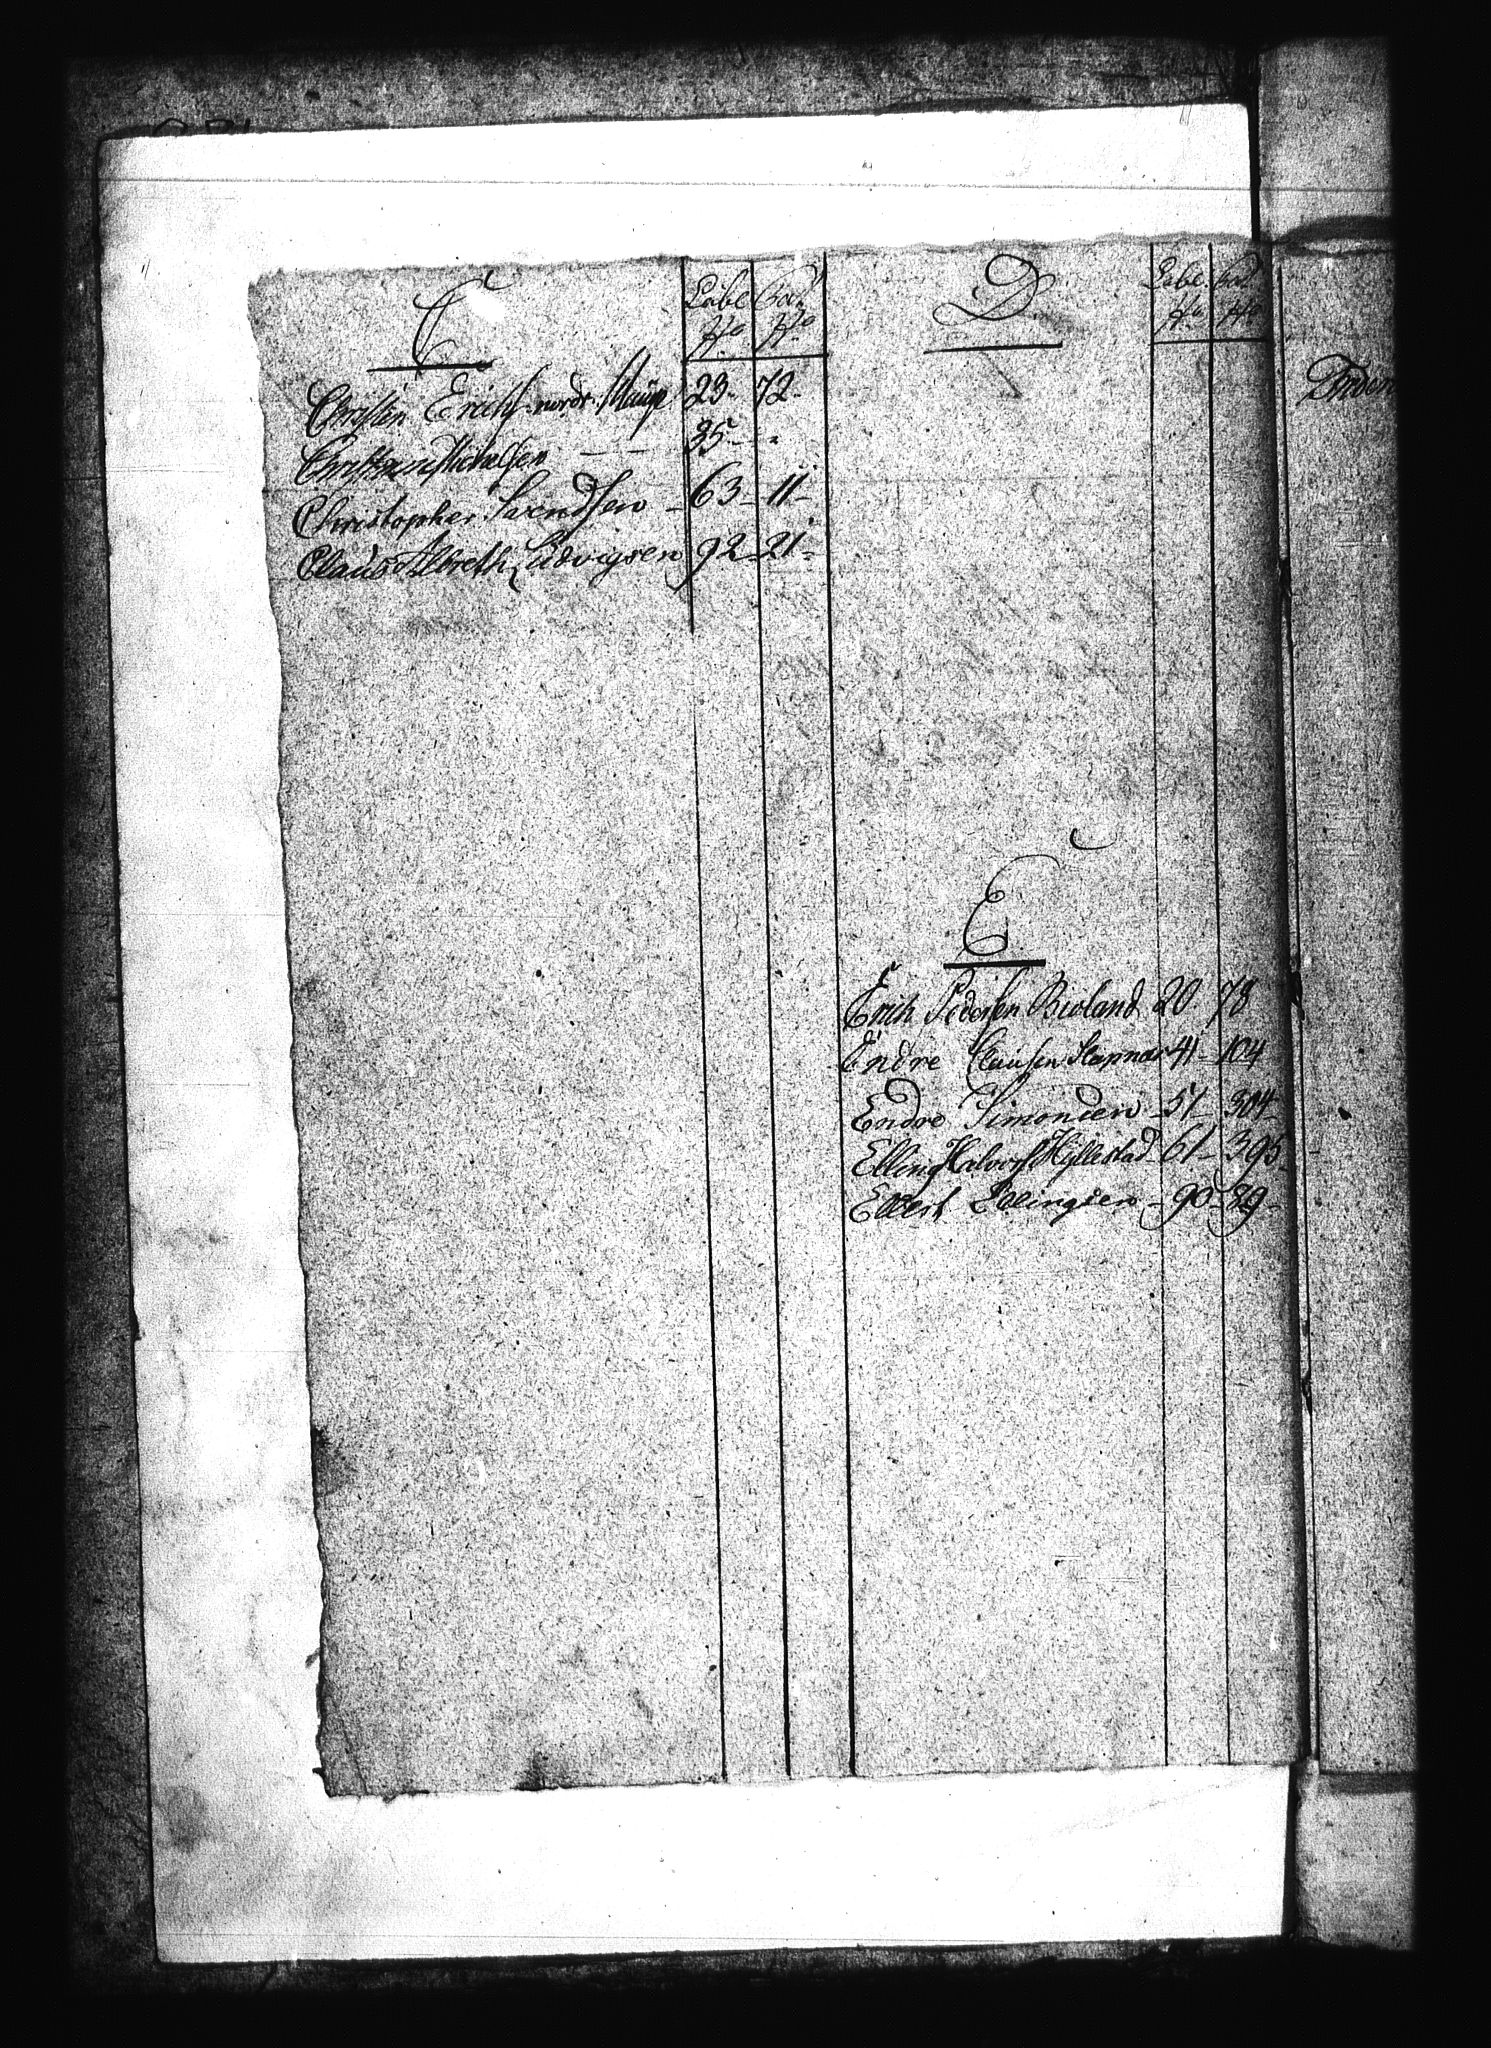 C
Løbe Rul
No No
Christen Erichs. nordr. 23 - 72 -
Christian Michelsen - - 35 - -
Christopher Svendsen - 63 - 11 -
Claus Albreth Ludvigsen 92 - 21 -
D.
Løbe Rul
No No
E
Erich Pedersen Bioland 20 78
Endre Clausen 41 - 104
Endre Simonsen - 51 - 304
Elling Halvors Hyllestad 61 - 395
Ellert Ellingsen - 90 - 89 -